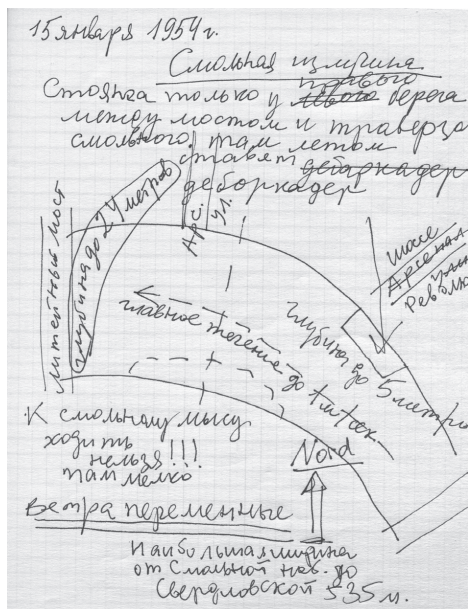 15 января 1954 г.
Смольная излучина
правого
Стоянка только у левого берега
между мостом и траверза
смольного. там летом
ставят дебаркадер
деборкадер
Литейный мост
глубина до 24 метров
Арс.
ул.
шоссе
Арсенал
Револю
главное течение до 4 м/сек.
глубина до 5 метров
К смольному мысу
ходить
нельзя!!!
там мелко
Nord
Ветра переменные
Наибольшая ширина
от Смольной наб. до
Свердловской 535 м.